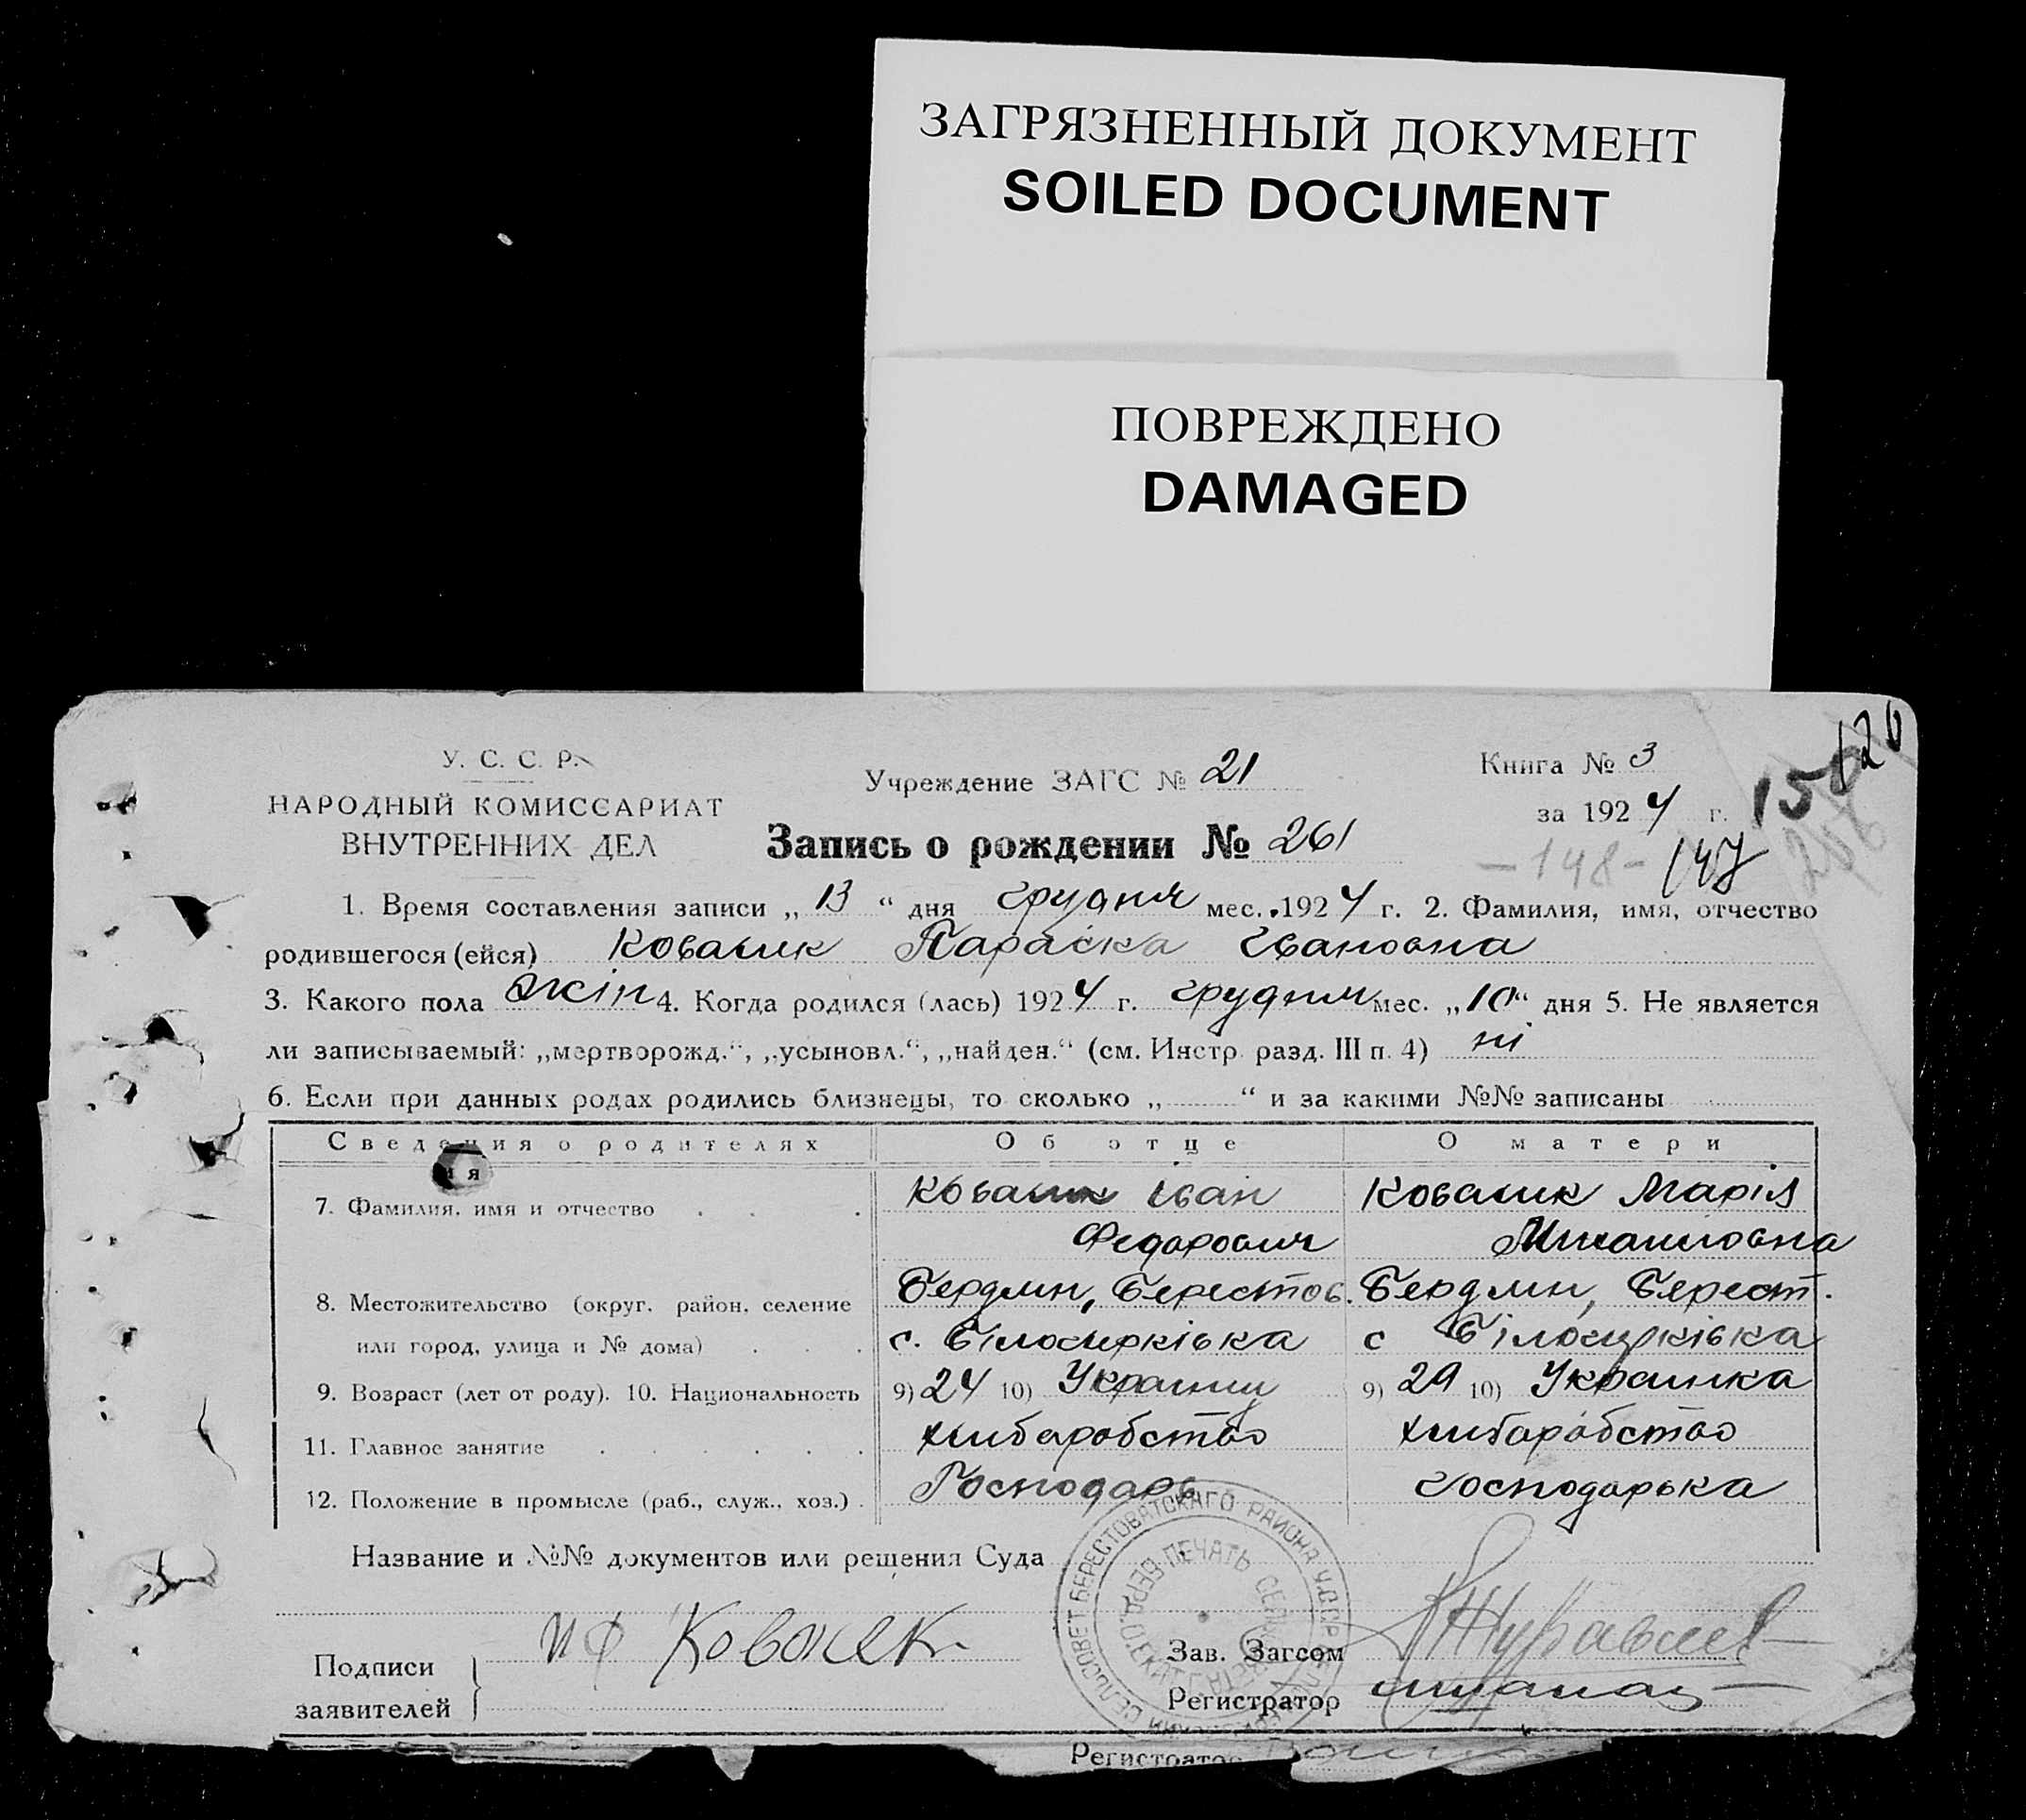 ЗАГРЯЗНЕННЫЙ ДОКУМЕНТ
SOILED DOCUMENT
ПОВРЕЖДЕНО
DAMAGED
У. С. С. Р.
НАРОДНЫЙ КОМИССАРИАТ
ВНУТРЕННИХ ДЕЛ
Учреждение ЗАГС № 21
Книга № 3
за 1924 г.
150
126
206
Запись о рождении № 261
- 148 - 147
1. Время составления записи „ 13 “ дня грудня мес. 1924 г. 2. Фамилия, имя, отчество
родившегося (ейся) Ковалик Параска Івановна
3. Какого пола жін 4. Когда родился (лась) 1924 г. грудня мес. „10“ дня 5. Не является
ли записываемый: „мертворожд.“, „усыновл.“, „найден.“ (см. Инстр. разд. III п. 4) ні
6. Если при данных родах родились близнецы, то сколько „ “ и за какими №№ записаны
Сведения о родителях Об отце О матери
7. Фамилия, имя и отчество Ковалик Іван Ковалик Марія
Федорович Михаиловна
8. Местожительство (округ, район, селение Бердян, Берестов. Бердян, Берест.
или город, улица и № дома) с. Білоцерківка с Білоцерківка
9. Возраст (лет от роду). 10. Национальность 9) 24 10) Украинец 9) 29 10) Украинка
11. Главное занятие хлиборобство хлиборобство
12. Положение в промысле (раб., служ., хоз.) Господарь господарька
Название и №№ документов или решения Суда
СЕЛЬСОВЕТ БЕРЕСТОВАТСКАГО РАЙОНА У.С.С.Р.
ПЕЧАТЬ
Подписи
заявителей
ИФ Ковалик
Зав. Загсом Журавлев
Регистратор
Регистратор